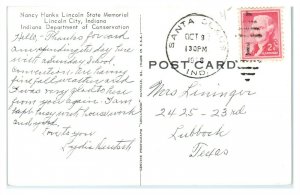 Nancy Hanks Lincoln State Memorial
Lincoln City, Indiana
Indiana Department of Conservation
Hello,- Thanks for card
am spending the day here
with Saturday School
convention, are having
fine fall weather and
I was very glad to hear
from you again. I am
kept busy with housework
and yard.
Love to you
Lydia
SANTA CLAUS
OCT 9
1 30 PM
IND.
2¢
POST CARD
Mrs Laninger
2425-23rd
Lubbock
Texas